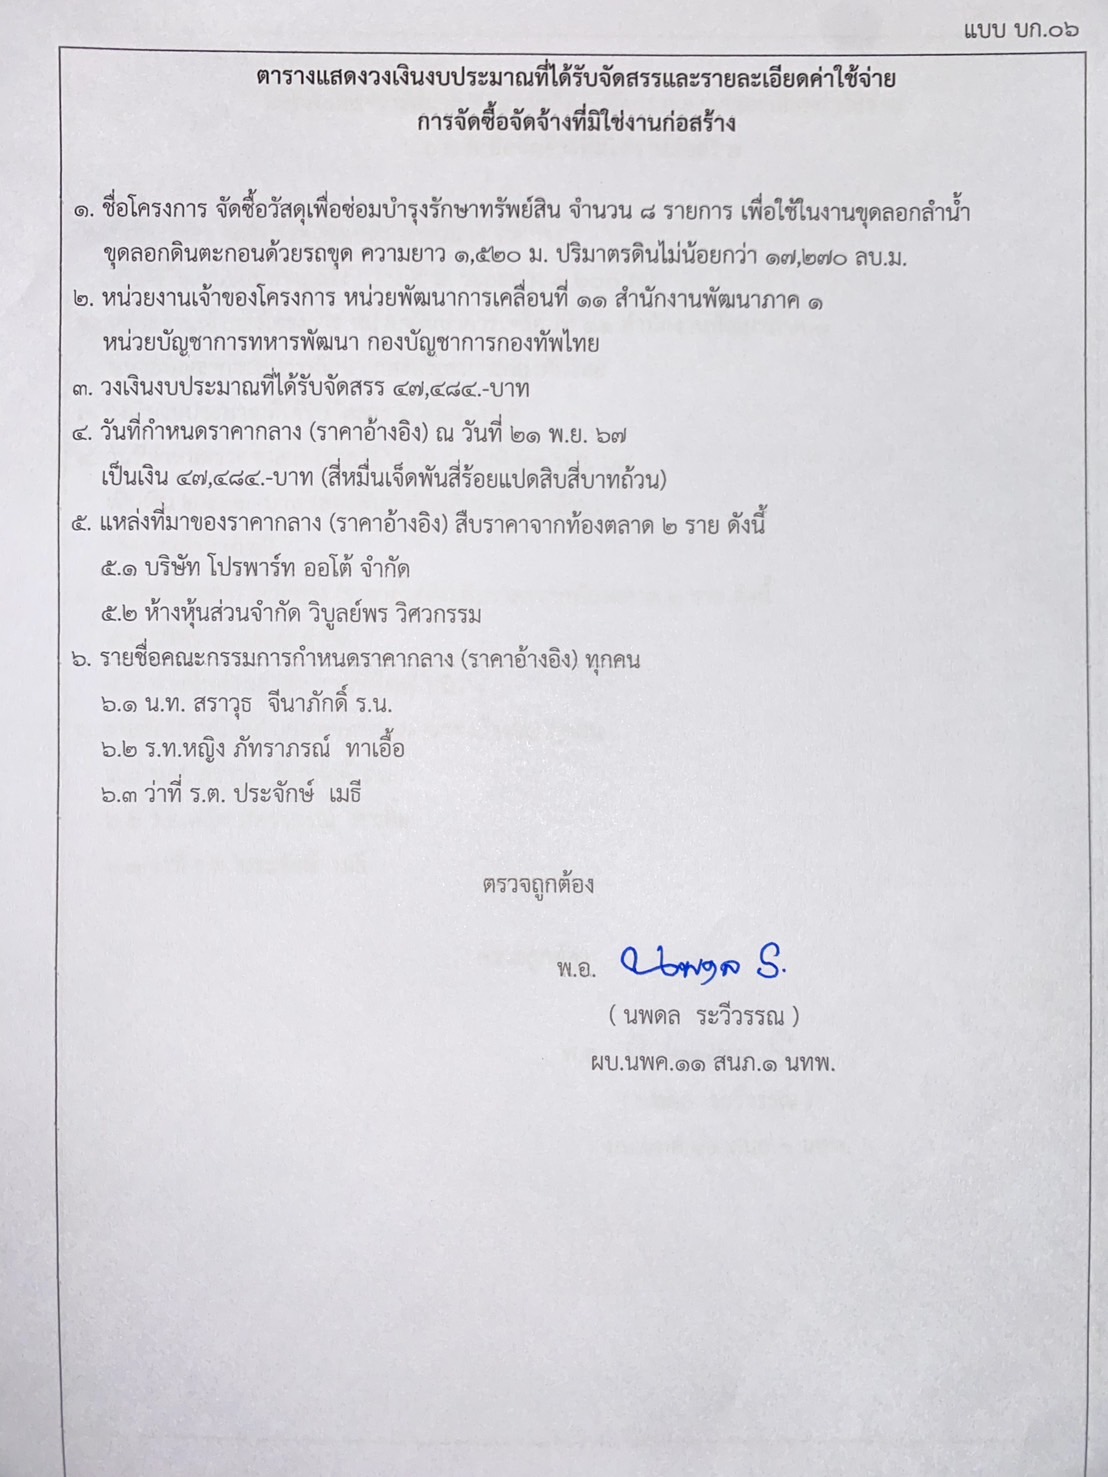 แบบ บก.๐๖
ตารางแสดงวงเงินงบประมาณที่ได้รับจัดสรรและรายละเอียดค่าใช้จ่าย
การจัดซื้อจัดจ้างที่มิใช่งานก่อสร้าง
๑. ชื่อโครงการ จัดซื้อวัสดุเพื่อซ่อมบำรุงรักษาทรัพย์สิน จำนวน ๘ รายการ เพื่อใช้ในงานขุดลอกลำน้ำ
ขุดลอกดินตะกอนด้วยรถขุด ความยาว ๑,๕๒๐ ม. ปริมาตรดินไม่น้อยกว่า ๑๗,๒๗๐ ลบ.ม.
๒. หน่วยงานเจ้าของโครงการ หน่วยพัฒนาการเคลื่อนที่ ๑๑ สำนักงานพัฒนาภาค ๑
หน่วยบัญชาการทหารพัฒนา กองบัญชาการกองทัพไทย
๓. วงเงินงบประมาณที่ได้รับจัดสรร ๔๗,๔๘๔.-บาท
๔. วันที่กำหนดราคากลาง (ราคาอ้างอิง) ณ วันที่ ๒๑ พ.ย. ๖๗
เป็นเงิน ๔๗,๔๘๔.-บาท (สี่หมื่นเจ็ดพันสี่ร้อยแปดสิบสี่บาทถ้วน)
๕. แหล่งที่มาของราคากลาง (ราคาอ้างอิง) สืบราคาจากท้องตลาด ๒ ราย ดังนี้
๕.๑ บริษัท โปรพาร์ท ออโต้ จำกัด
๕.๒ ห้างหุ้นส่วนจำกัด วิบูลย์พร วิศวกรรม
๖. รายชื่อคณะกรรมการกำหนดราคากลาง (ราคาอ้างอิง) ทุกคน
๖.๑ น.ท. สราวุธ  จีนาภักดิ์ ร.น.
๖.๒ ร.ท.หญิง ภัทราภรณ์  ทาเอื้อ
๖.๓ ว่าที่ ร.ต. ประจักษ์  เมธี
ตรวจถูกต้อง
พ.อ. นพดล ร.
( นพดล  ระวีวรรณ )
ผบ.นพค.๑๑ สนภ.๑ นทพ.